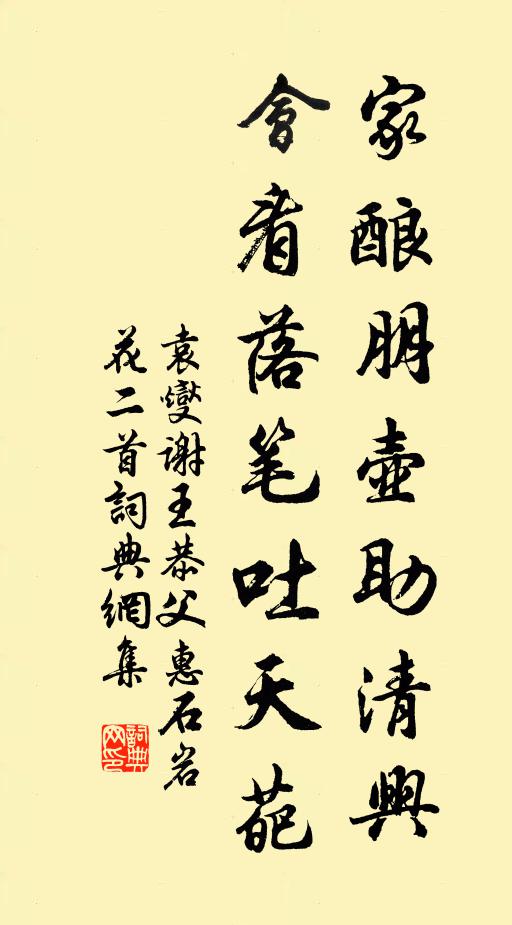 家酿朋壺助清興
會看落笔吐天葩
袁燮谢王恭父惠石岩
花二首詞典網集
詞典网印